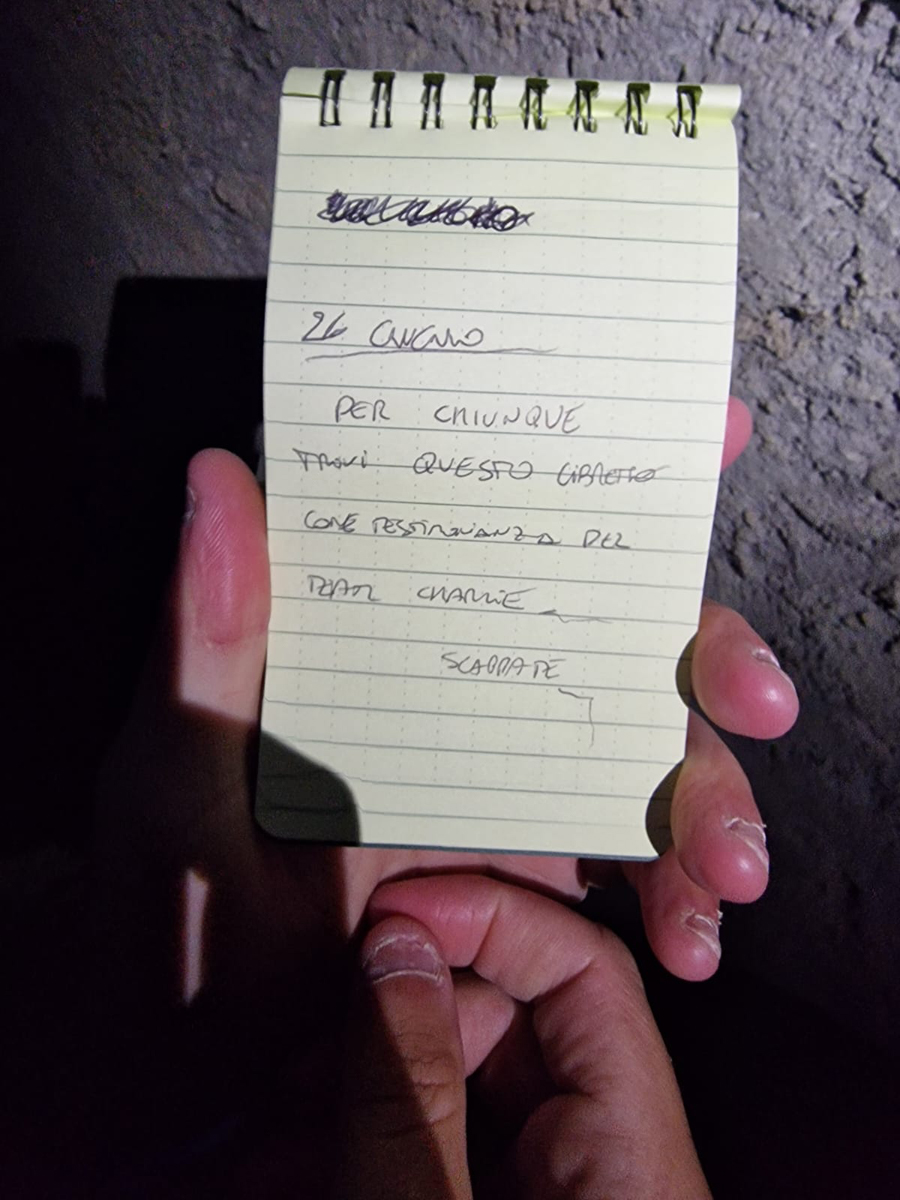 26 GIUGNO
PER CHIUNQUE
TROVI QUESTO LIBRETTO
COME TESTIMONIANZA DEL
TEAM CHARLIE
SCAPPATE